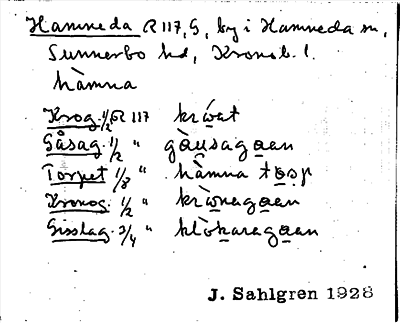 Hamneda R 117, G, by i Hamneda sn,
Sunnerbo hd, Kronob. l.
hàmna
Krog. 1/2 R 117 kròat
Gåsag. 1/2 " gàusagaan
Torpet 1/8 " hàmna tosp
Kronog. 1/2 " krònagaan
Gisslag. 3/4 " klòkaragaan
J. Sahlgren 1928